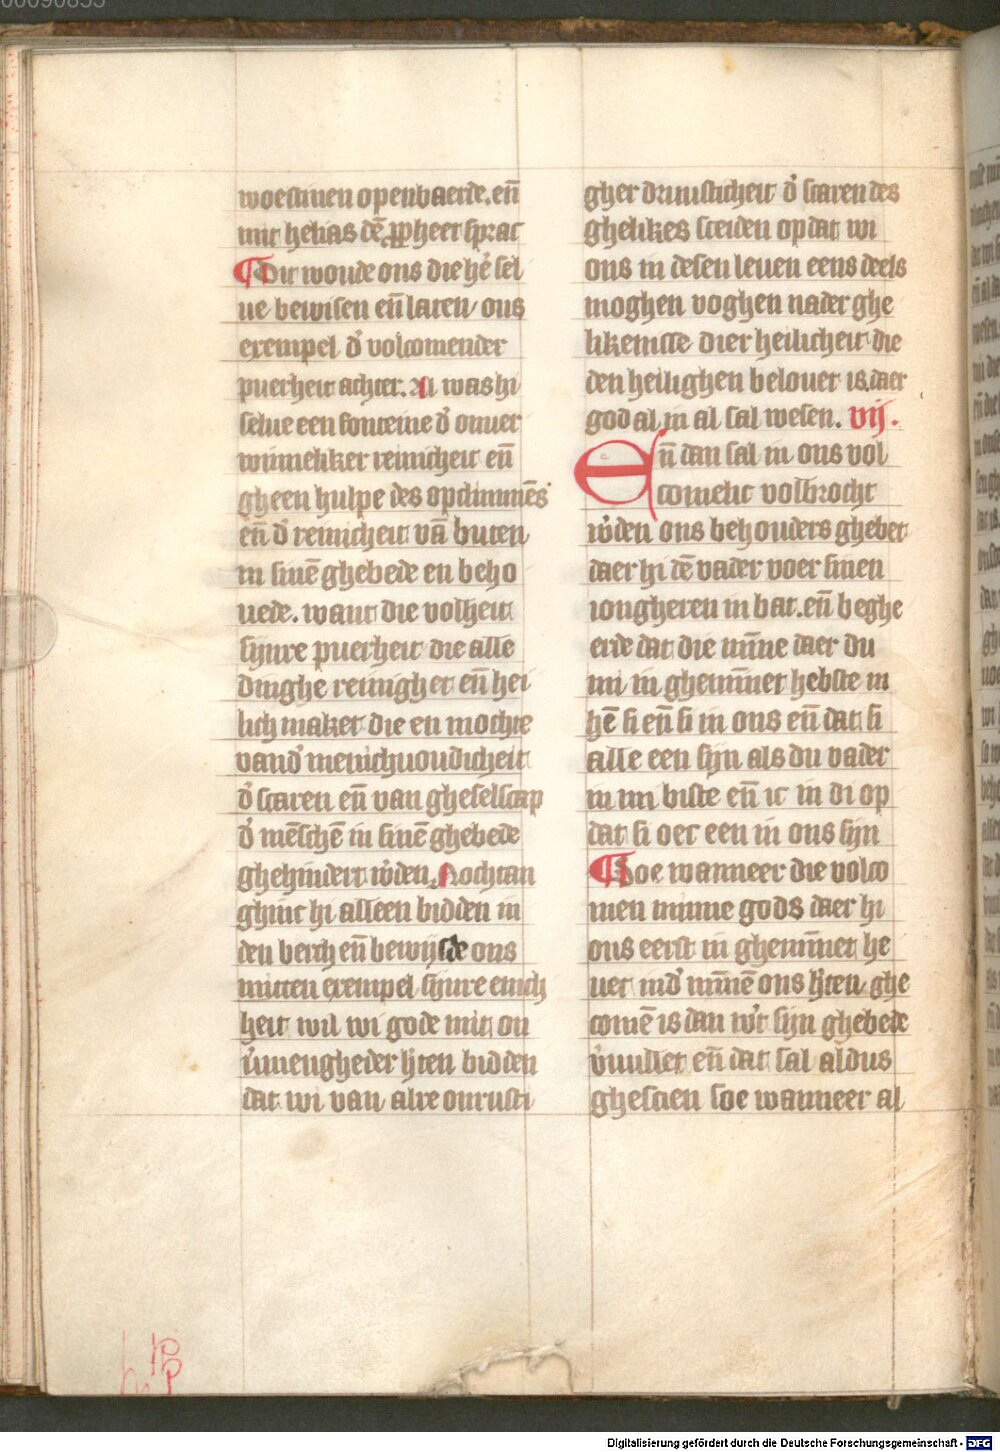 woestinen openbaerde. en̄
mit helias dē ꝓpheet sprac
¶ Dit woude ons die he᷒ sel
ue bewisen en̄ laten ons
exempel d᷒ volcomender
puerheit achter. Al was hi
selue een fonteine d᷒ onuer
winneliker reinicheit en̄
gheen hulpe des opclimmēs
en̄ d᷒ reinicheit vā buten
in sinē ghebede en beho
uede. want die volheit
sijnre puerheit die alle
dinghe reinighet en̄ hei
lich maket die en mochte
vand᷒ menichuoudicheit
d᷒ scaren en̄ van gheselscap
d᷒ mēschē in sinē ghebede
ghehindert w᷒den. Nochtan
ghinc hi alleen bidden in
den berch en̄ bewijsde ons
mitten exempel sijnre enich
heit wil wi gode mit on
v᷒mengheder h᷒ten bidden
dat wi van alre onrusti
gher druusticheit d᷒ scaren des
ghelikes sceiden op dat wi
ons in desen leuen eens deels
moghen voghen nader ghe
likenisse dier heilicheit die
den heilighen belouet is. daer
god al in al sal wesen. vij.
En̄ dan sal in ons vol
comelic volbrocht
w᷒den ons behouders ghebet
daer hi dē vader voer sinen
iongheren in bat. en̄ beghe
erde dat die mīne daer du
mi in ghemīnet hebste in
hē si en̄ si in ons en̄ dat si
alle een sijn als du vader
in mi biste en̄ ic in di op
dat si oec een in ons sijn
¶ Soe wanneer die volco
men minne gods daer hi
ons eerst in ghemīnet he
uet ind᷒ mīnē ons h᷒ten ghe
comē is dan w᷒t sijn ghebede
v᷒uullet en̄ dat sal aldus
ghescien soe wanneer al
Digitalisierung gefördert durch die Deutsche Forschungsgemeinschaft - DFG